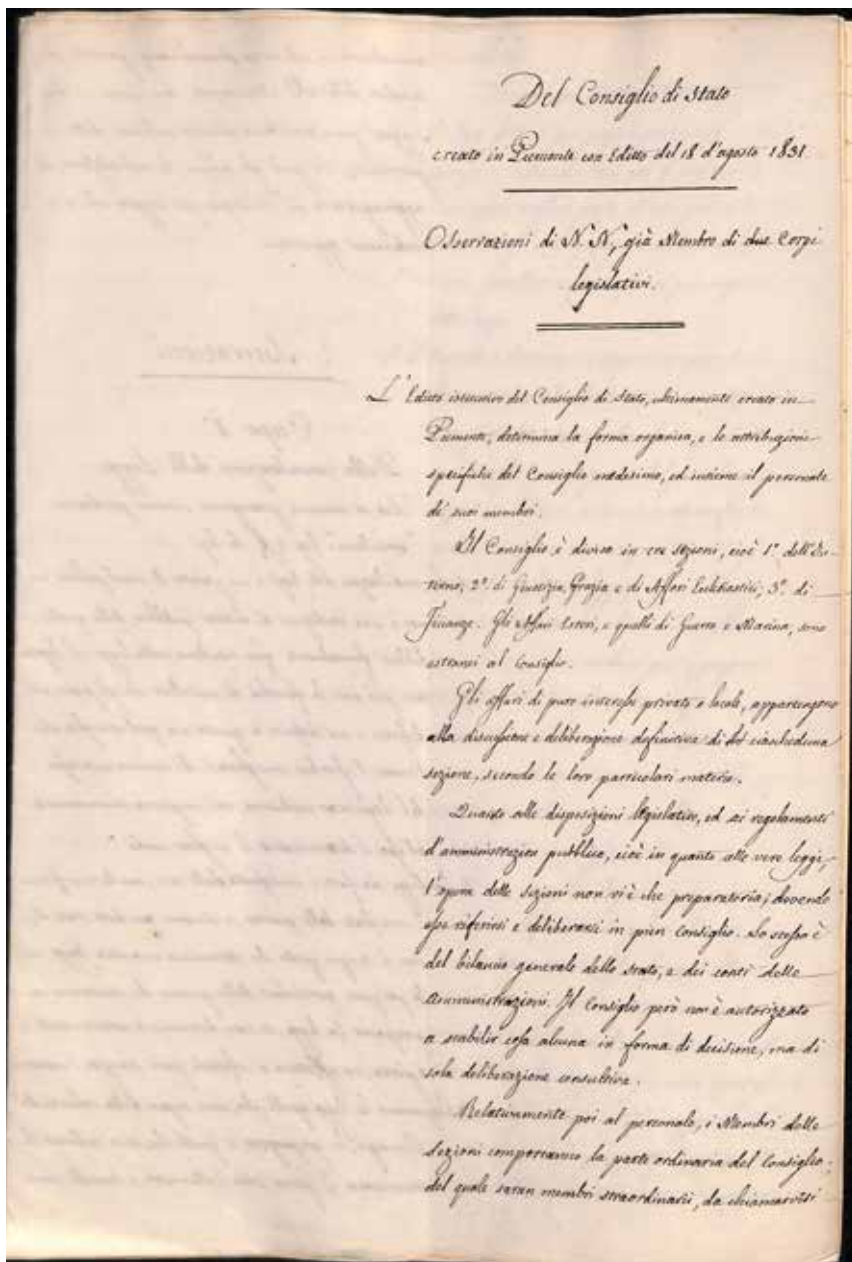 Del Consiglio di Stato
creato in Piemonte con Editto del 18 d'agosto 1831
Osservazioni di N. N., già Membro di due Corpi
legislativi.
L'Editto istitutivo del Consiglio di Stato, ultimamente creato in
Piemonte, determina la forma organica, e le attribuzioni
specifiche del Consiglio medesimo, ed insieme il personale
de' suoi membri.
Il Consiglio è diviso in tre sezioni, cioè 1.° dell'In-
terno, 2.° di Giustizia, Grazia e di Affari Ecclesiastici, 3.° di
Finanze. Gli Affari Esteri, e quelli di Guerra e Marina, sono
estranei al Consiglio.
Gli affari di puro interesse privato o locale, appartengono
alla discussione e deliberazione definitiva di ciascheduna
sezione, secondo le loro particolari materie.
Quanto alle disposizioni legislative, ed ai regolamenti
d'amministrazione pubblica, cioè in quanto alle vere leggi,
l'opera delle sezioni non vi è che preparatoria; dovendo
esse riferirsi e deliberarsi in pien Consiglio. Lo stesso è
del bilancio generale dello stato, e dei conti delle
Amministrazioni. Il Consiglio però non è autorizzato
a stabilir cosa alcuna in forma di decisione, ma di
sola deliberazione consultiva.
Relativamente poi al personale, i Membri delle
sezioni comporranno la parte ordinaria del Consiglio;
del quale saran membri straordinarii, da chiamarvisi